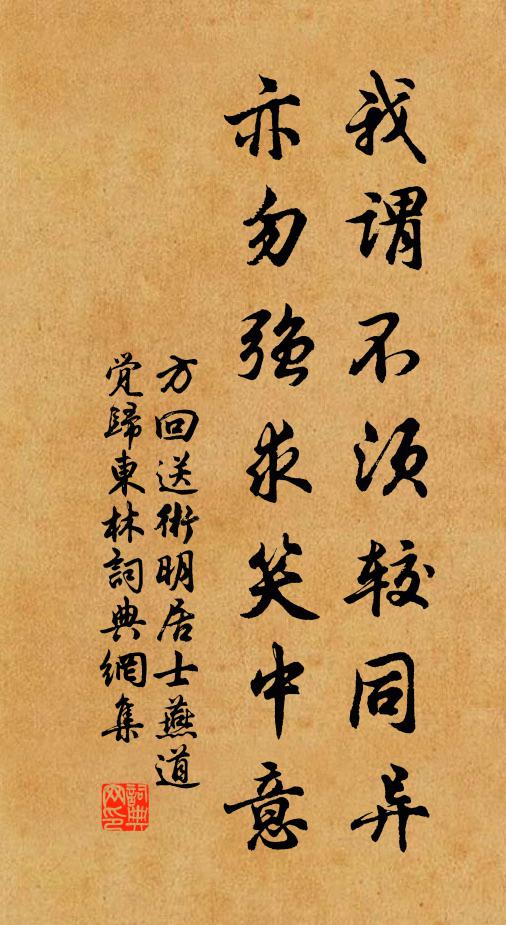 我谓不须较同异
亦勿强求笑中意
方回送術明居士燕道
觉歸東林詞典網集
詞典
网印